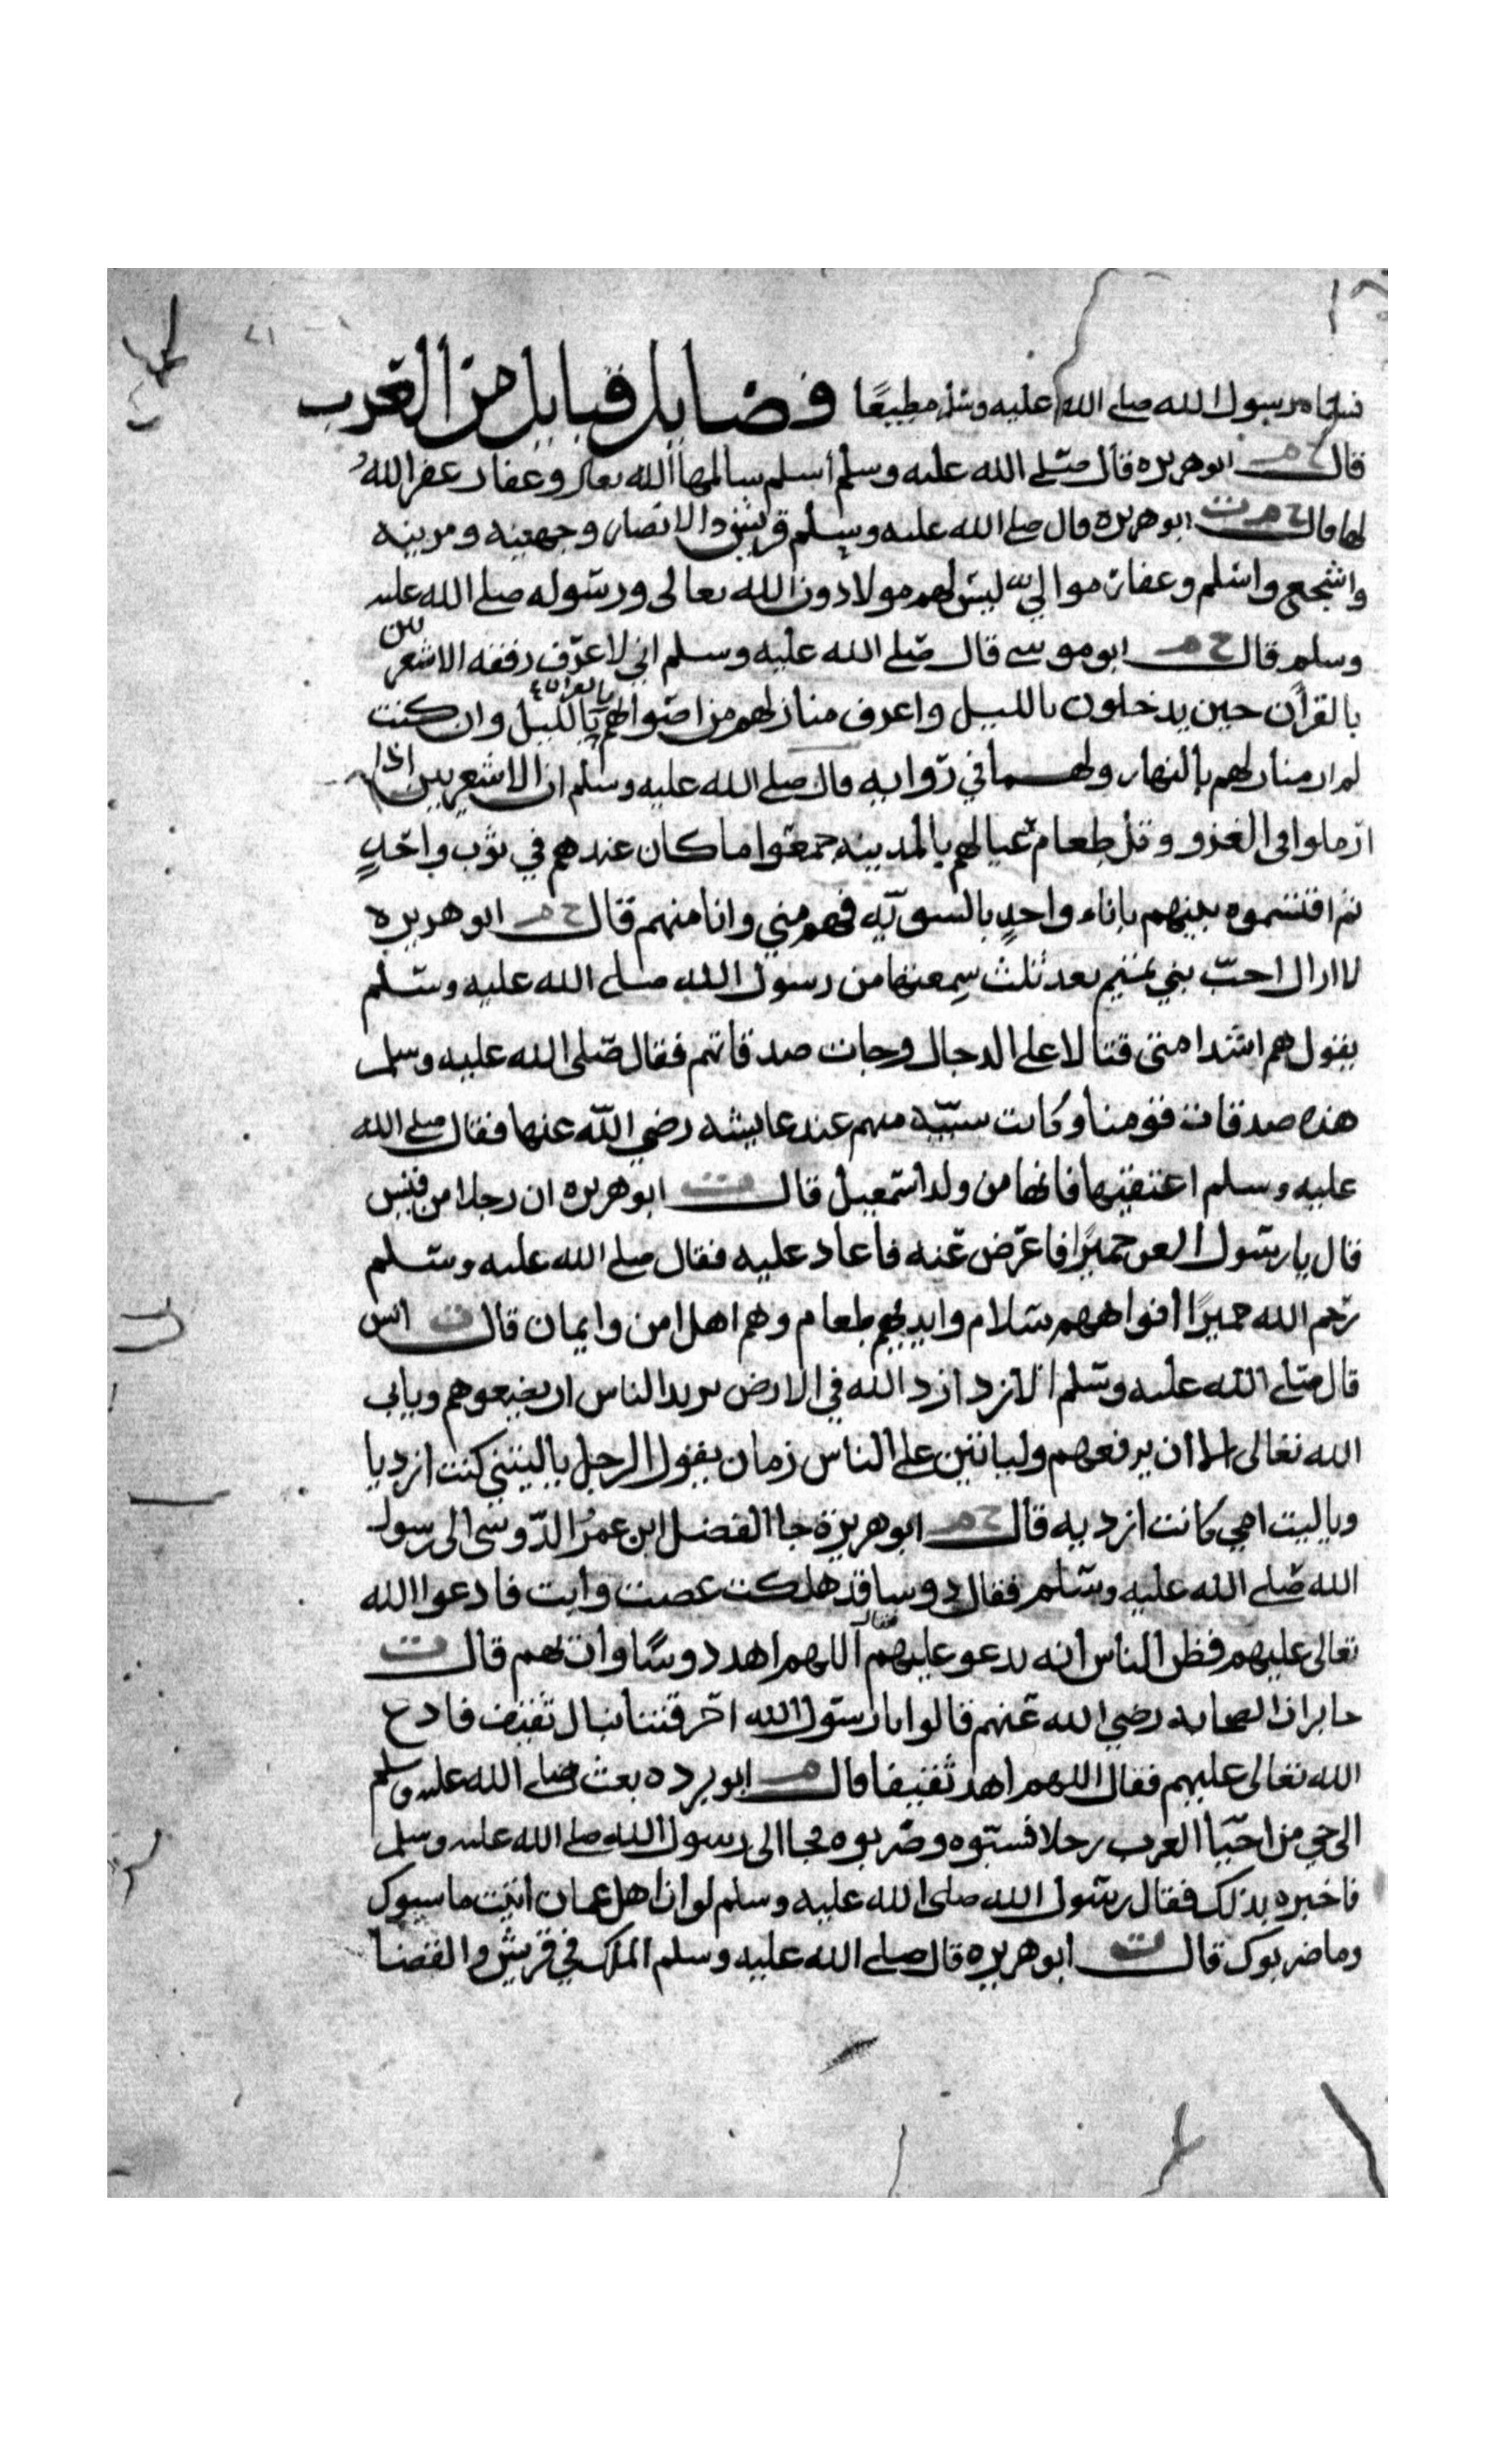 فسماه رسول الله صلى الله عليه وسلم مطيعًا فضايل قبايل من العرب
قال خ م ابو هريره قال صلى الله عليه وسلم أسلم سالمها الله تعالى وغفار غفر الله
لها قال خ م ت ابو هريرة قال صلى الله عليه وسلم قريش والانصار وجهينه ومزينه
واشجع واسلم وغفار موالي ليس لهم مولا دون الله تعالى ورسوله صلى الله عليه
وسلم قال خ م ابو موسى قال صلى الله عليه وسلم اني لاعرف رفقه الاشعريين
بالقرآن حين يدخلون بالليل واعرف منازلهم من اصواتهم بالقرآن بالليل وان كنت
لم ار منازلهم بالنهار ولهما في رواية قال صلى الله عليه وسلم ان الاشعريين اذا
ارملوا في الغزو وقل طعام عيالهم بالمدينه جمعوا ما كان عندهم في ثوب واحدٍ
ثم اقتسموه بينهم باناء واحدٍ بالسويّه فهم مني وانا منهم قال خ م ابو هريره
لا ازال احبّ بني تميم بعد ثلث سمعتها من رسول الله صلى الله عليه وسلم
يقول هم اشد امتى قتالا على الدجال وجات صدقاتهم فقال صلى الله عليه وسلم
هذه صدقات قومنا وكانت سبيّه منهم عند عايشه رضي الله عنها فقال صلى الله
عليه وسلم اعتقيها فانها من ولد اسمعيل قال ت ابو هريره ان رجلا من قيس
قال يا رسول العن حميرًا فاعرض عنه فاعاد عليه فقال صلى الله عليه وسلم
رحم الله حميرًا أفواههم سلام وايديهم طعام وهم اهل امن وايمان قال ت انس
قال صلى الله عليه وسلم الازد ازد الله في الارض يريد الناس ان يضعوهم ويابى
الله تعالى الا ان يرفعهم ولياتين على الناس زمان يقول الرجل ياليتني كنت ازديا
وياليت امي كانت ازديه قال خ م ابو هريرة جا الفضل ابن عمرُ الدّوسي الى رسول
الله صلى الله عليه وسلم فقال دوسا قد هلكت عصت وابت فادعوا الله
تعالى عليهم فظن الناس انه يدعو عليهم فقال اللهم اهد دوسًا وات بهم قال ت
جابر ان الصحابه رضي الله عنهم قالوا يا رسول الله احرقتنا نبال ثقيف فادع
الله تعالى عليهم فقال اللهم اهد ثقيفا قال م ابو برده بعث صلى الله عليه وسلم
الى حي من احيّا العرب رجلا فسبّوه وضربوه فجا الى رسول الله صلى الله عليه وسلم
فاخبره بذلك فقال رسول الله صلى الله عليه وسلم لو ان اهل عمان اتيت ما سبوك
وما ضربوك قال ت ابو هريره قال صلى الله عليه وسلم الملك في قريش والقضا